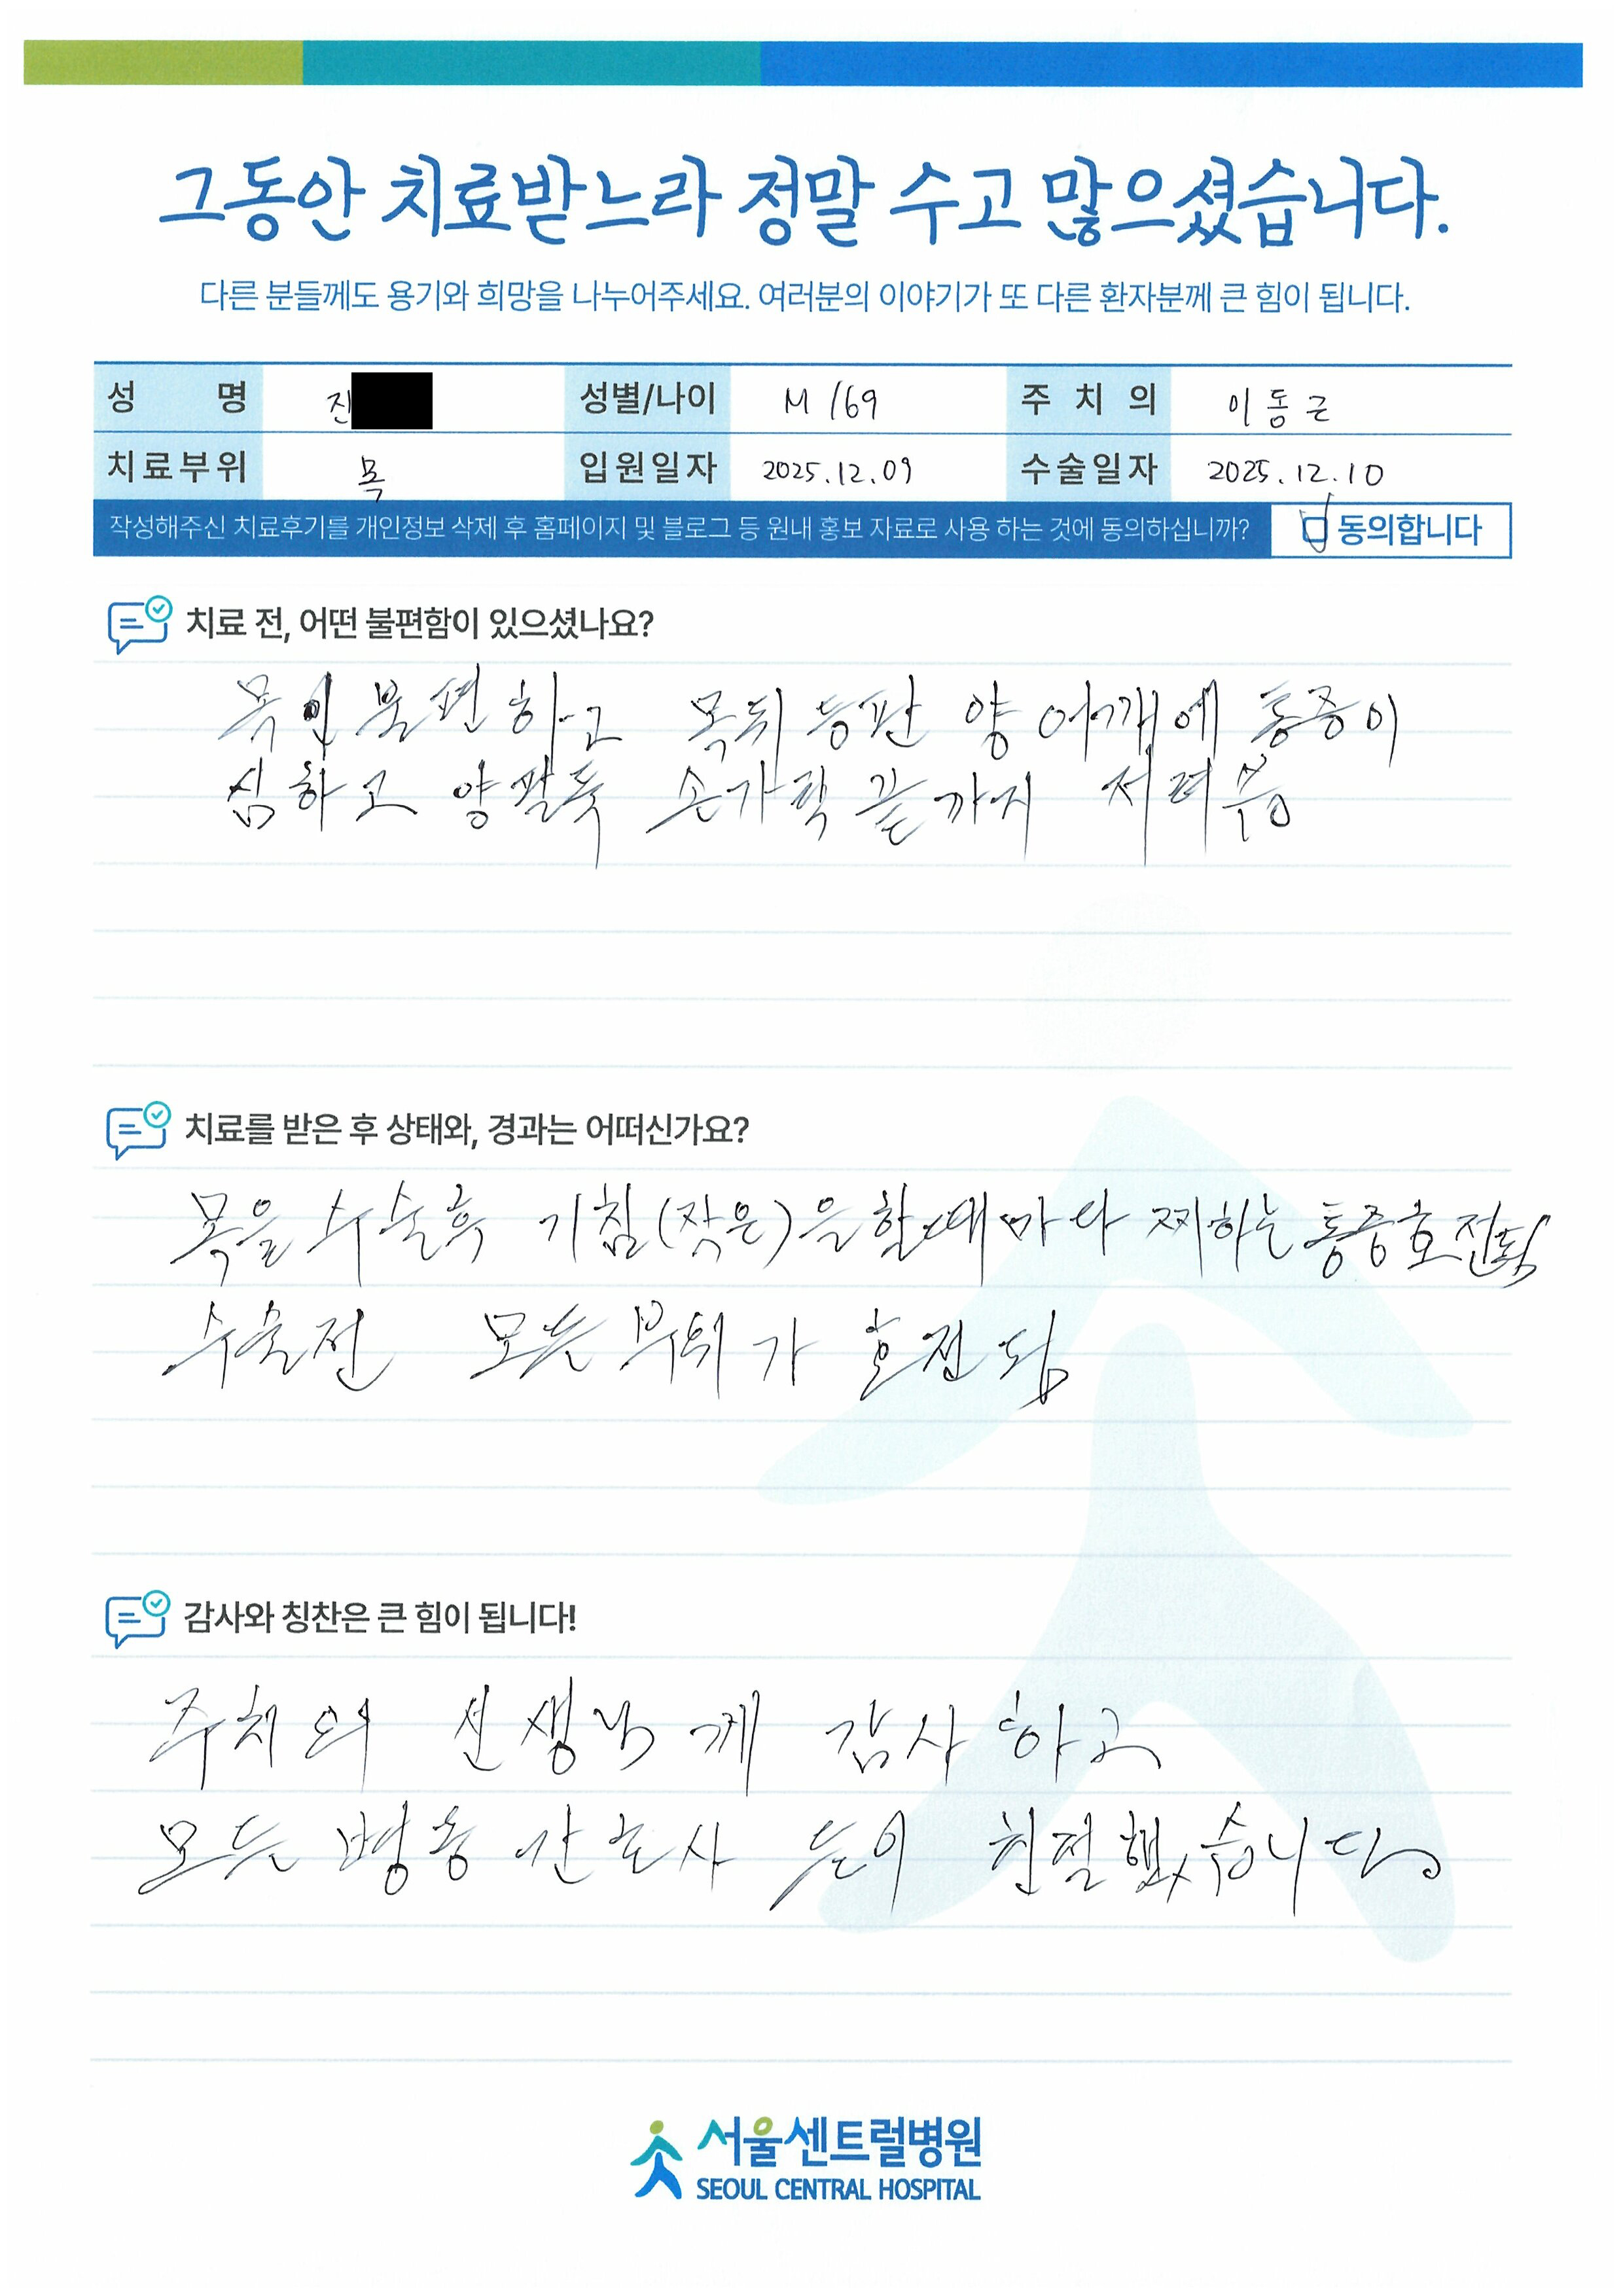 그동안 치료받느라 정말 수고 많으셨습니다.
다른 분들께도 용기와 희망을 나누어주세요. 여러분의 이야기가 또 다른 환자분께 큰 힘이 됩니다.
성 명 진 성별/나이 M/69 주 치 의 이동근
치료부위 목 입원일자 2025.12.09 수술일자 2025.12.10
작성해주신 치료후기를 개인정보 삭제 후 홈페이지 및 블로그 등 원내 홍보 자료로 사용 하는 것에 동의하십니까? 동의합니다
치료 전, 어떤 불편함이 있으셨나요?
목이 불편하고 목뒤 등판 양 어깨에 통증이
심하고 양팔뚝 손가락 끝까지 저려
치료를 받은 후 상태와, 경과는 어떠신가요?
목을 수술후 기침(잦은)을 할때마다 찌하는 통증호전됨
수술전 모든 부위가 호전됨
감사와 칭찬은 큰 힘이 됩니다!
주치의 선생님께 감사하고
모든 병동 간호사 들이 친절했습니다.
서울센트럴병원
SEOUL CENTRAL HOSPITAL